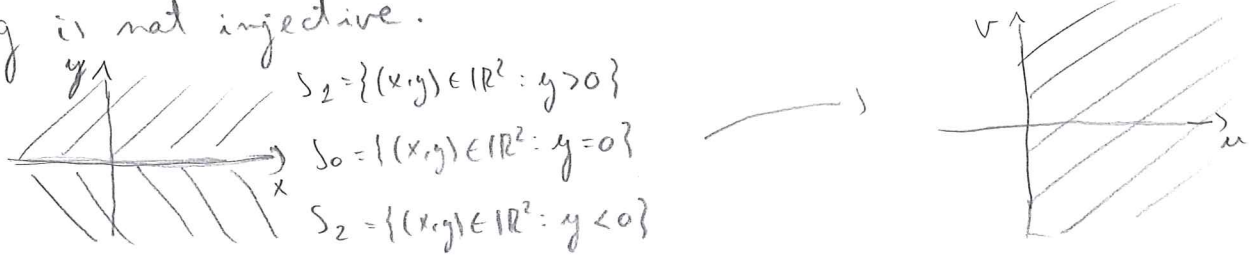 g is not injective.
y
S₂ = {(x,y) ∈ ℝ² : y > 0}
S₀ = {(x,y) ∈ ℝ² : y = 0}
x
S₂ = {(x,y) ∈ ℝ² : y < 0}
v
u